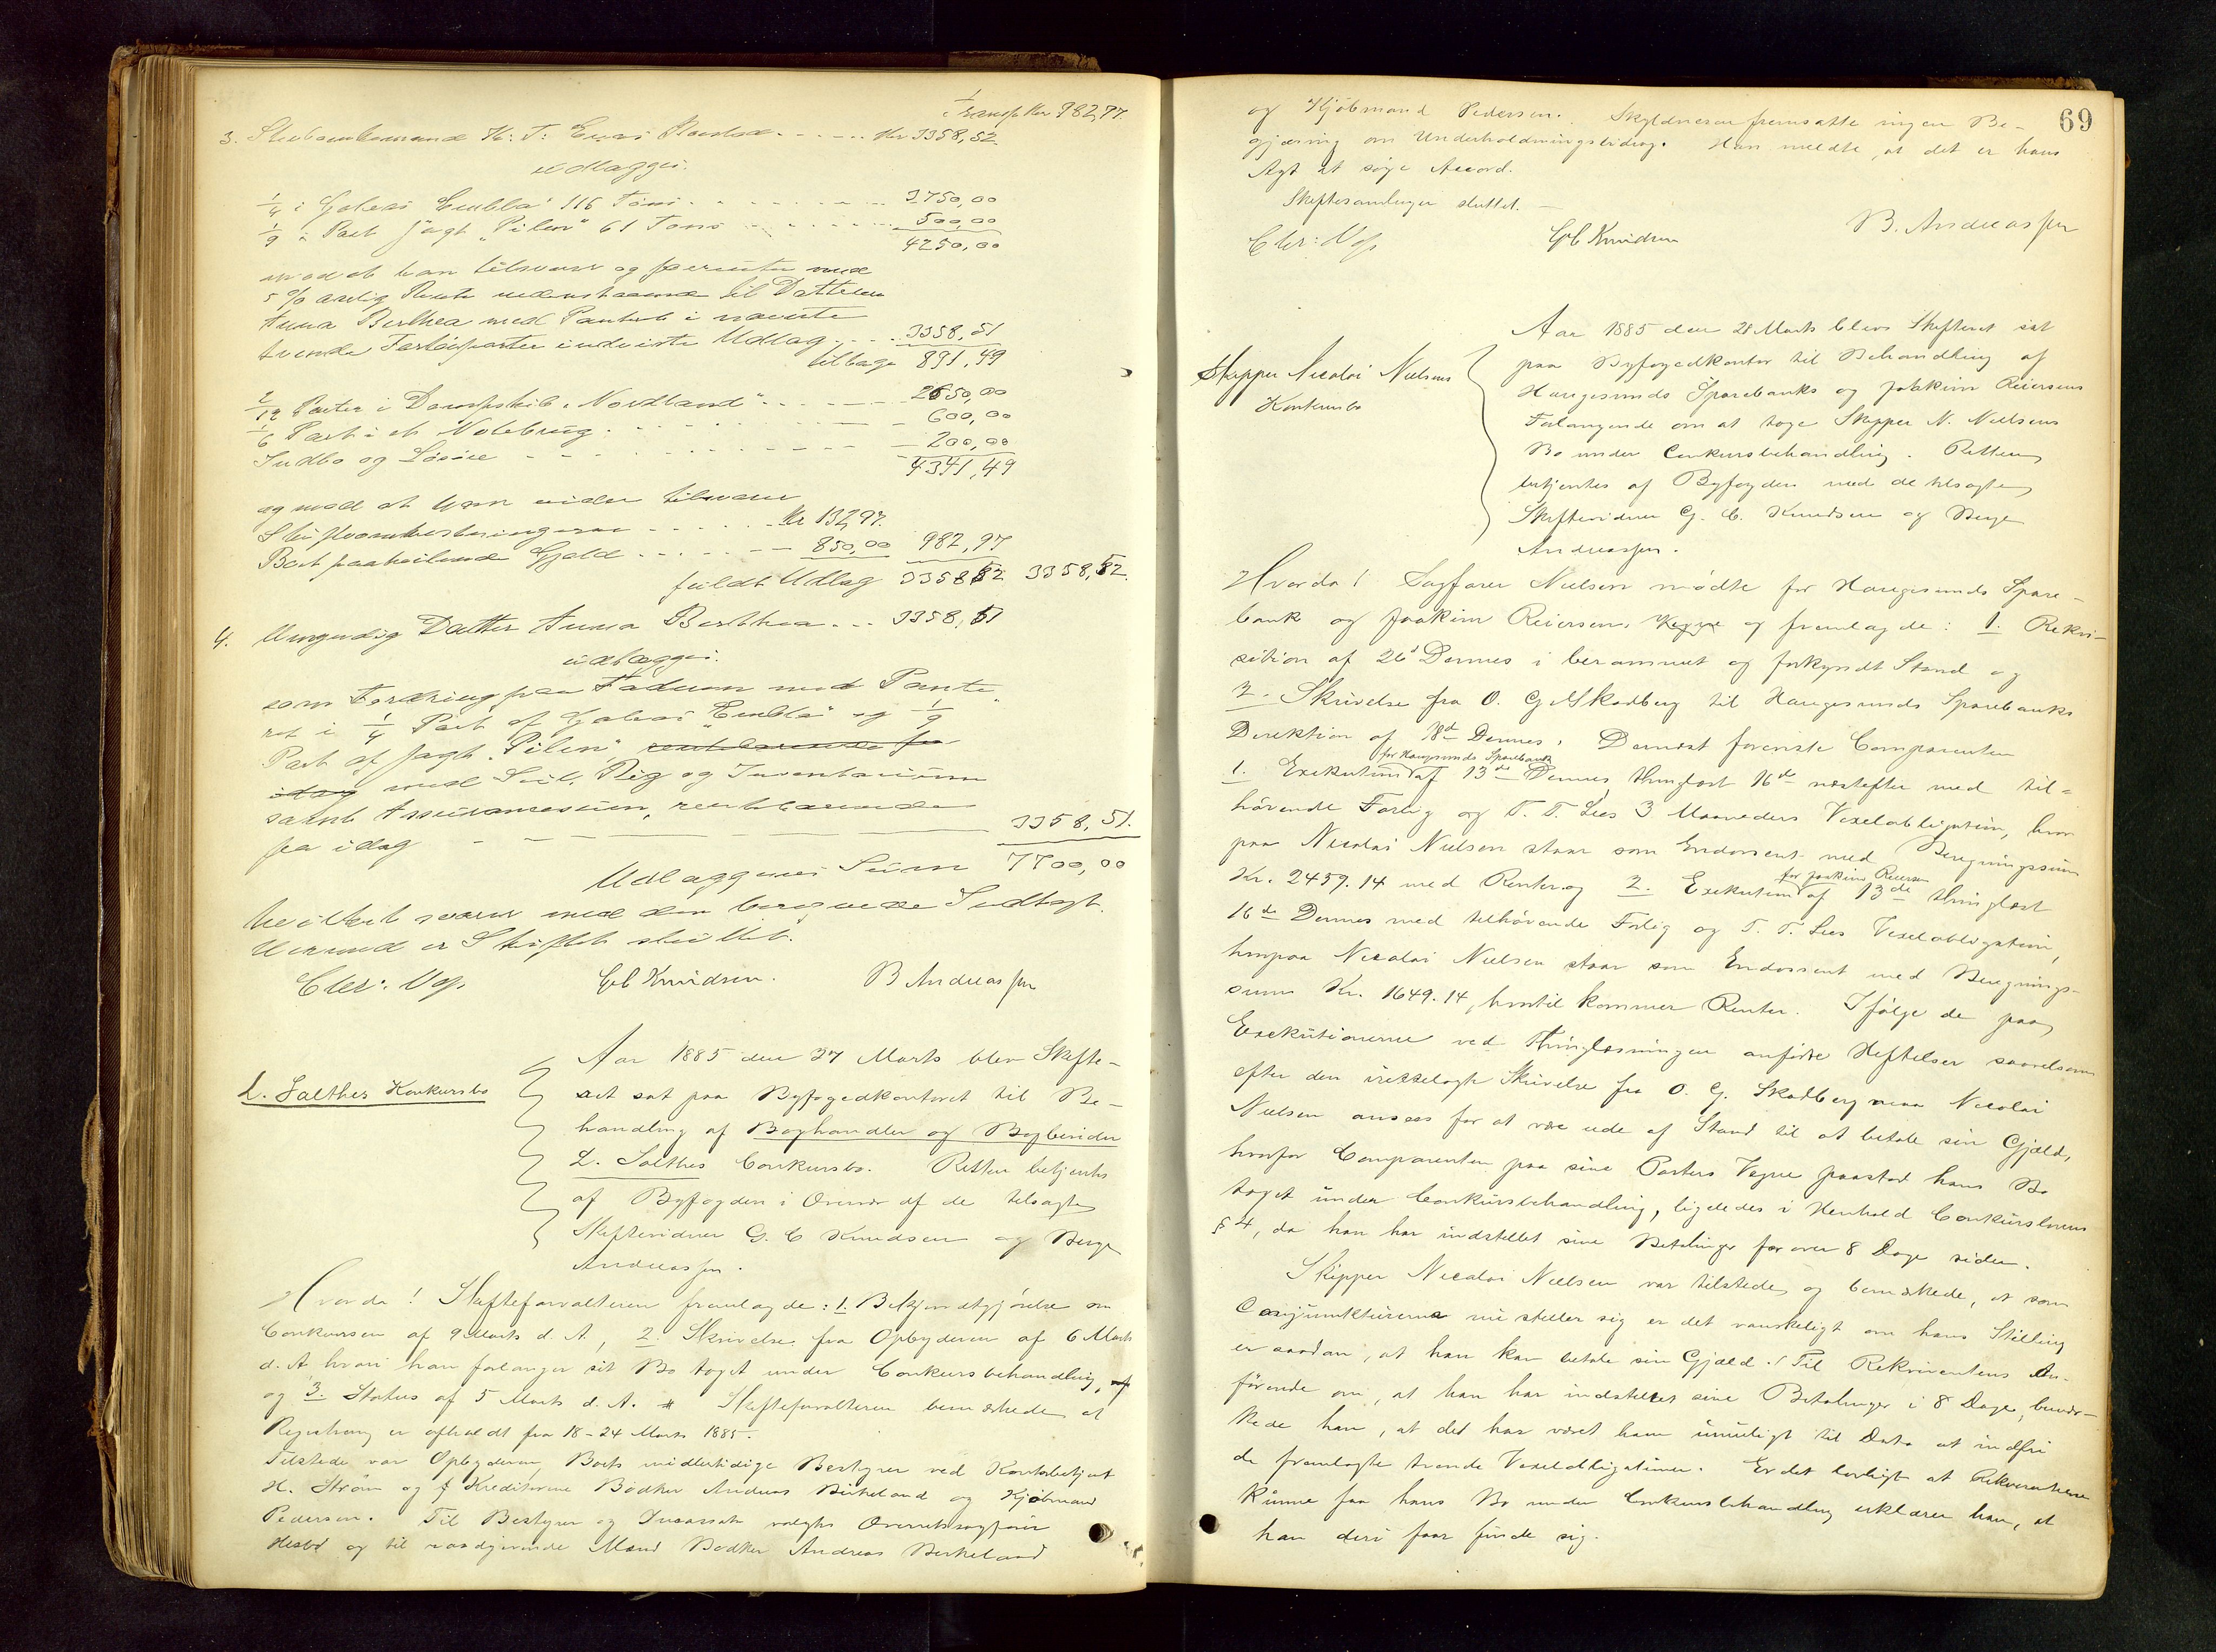 Transp Kr 982,97.
3. Stervboenkemand H: T: Ewas - - - - Kr 3358,52
udlægges.
1/4 i Galeas Embla 116 Tons - - - - 3750,00
1/9 Part Jagt "Pilen" 61 Tons - - - - 500,00
4250,00
mod at han tilsvarer og forrenter med
5 % aarlig Rente nedenstaaende til Datteren
Anna Berthea med Panteret i nævnte
tvende Fartøiparter indviste Udlag - - - 3358,51
tilbage 891,49
2/12 Parter i Dampskib "Nordland" - - - 2650,00
1/6 Part i et Notebrug - - - 600,00
Indbo og Løsøre - - - 200,00
4341,49
og mod at han videre tilsvarer
Skifteomkostningerne - - - - Kr 132,97.
Boet paahvilende Gjæld - - - - 850,00 982,97
fuldt Udlæg 3358,52 3358,52.
4. Umyndig Datter Anna Berthea - - 3358,51
udlægges.
som Fordring paa Faderen med Pante-
ret i 1/4 Part af Galeas "Embla" og 1/9
Part af Jagt "Pilen", rentebærende fra
idag med Seil, Rig og Inventarium
samt Assurancesum, rentebærende
fra idag - - - 3358,51.
Udlæggenes Sum 7700,00
hvilket svarer med den beregnede Indtægt.
Hermed er Skiftet sluttet.
Chr: Vog. G C Knudsen. B Andreassen
L. Salthes Konkursbo
Aar 1885 den 27 Marts blev Skifte-
ret sat paa Byfogedkontoret til Be-
handling af Boghandler og Bogbinder
L. Salthes Conkursbo. Retten betjentes
af Byfogden i Overvær af de tilsagte
Skiftevidner G. C Knudsen og Berge
Andreassen.
Hvorda! Skifteforvalteren fremlagde: 1. Bekjendtgjørelse om
Conkursen af 9 Marts d. A., 2. Skrivelse fra Opbyderen af 6 Marts
d. A hvori han forlanger sit Bo taget under Conkursbehandling,
og 3. Status af 5 Marts d. A. Skifteforvalteren bemærkede at
Registrering er afholdt fra 18-24 Marts 1885.
Tilstede var Opbyderen, Boets midlertidige Bestyrer ved Kontorbetjent
H. Strøm og Kreditorerne Bødker Andreas Birkeland og Kjøbmand
Pedersen. Til Bestyrer og Incassator valgtes Overretssagfører
og til raadgivende Mænd Bødker Andreas Berkeland
69
og Kjøbmand Pedersen. Skyldneren fremsatte ingen Be-
gjæring om Underholdningsbidrag. Han meldte, at det er hans
Agt at søge Accord.
Skiftesamlingen sluttet. -
Chr: Vog G C Knudsen B. Andreassen
Skipper Nicolai Nielsens
Konkursbo
Aar 1885 den 28 Marts blev Skifteret sat
paa Byfogedkontor til Behandling af
Haugesunds Sparebanks og Joakim Reiersens
Forlangende om at tage Skipper N. Nielsens
Bo under Conkursbehandling. Retten
betjentes af Byfogden med de tilsagte
Skiftevidner G. C. Knudsen og Berge
Andreassen.
Hvorda! Sagfører Nielsen mødte for Haugesunds Spare-
bank og Joakim Reiersen, og fremlagde: 1. Rekvi-
sition af 26' Dennes i berammet og forkyndt Stand og
2. Skrivelse fra O. G. Skadberg til Haugesunds Sparebanks
Direktion af 18de Dennes. Dernæst foreviste Comparenten
for Haugesunds Sparebank
1. Exekution af 13de Dennes thinglæst 16de næstefter med til-
hørende Forlig og T. T. Lies 3 Maaneders Vexelobligation, hvor
paa Nicolai Nielsen staar som Endossent med Beregningssum
for Joakim Reiersen
Kr. 2459.14 med Renter og 2. Exekution af 13de thinglæst
16de Dennes med tilhørende Forlig og T. T. Lies Vexelobligation,
hvorpaa Nicolai Nielsen staar som Endossent med Beregnings-
sum Kr. 1649.14, hvortil kommer Renter. Ifølge de paa
Exekutionerne ved Thinglæsningen anførte Heftelser saavelsom
efter den irettelagte Skrivelse fra O. G. Skadberg maa Nicolai
Nielsen ansees for at være ude af Stand til at betale sin Gjæld,
hvorfor Comparenten paa sine Parters Vegne paastod hans Bo
taget under Conkursbehandling, ligeledes i Henhold Conkurslovens
§ 4, da han har indstillet sine Betalinger for over 8 Dage siden.
Skipper Nicolai Nielsen var tilstede, og bemærkede, at som
Conjunkturerne nu stiller sig er det vanskeligt om hans Stilling
er saadan, at han kan betale sin Gjæld. Til Rekvirentens An-
førende om, at han har indstillet sine Betalinger i 8 Dage, bemær-
kede han, at det har været ham umuligt til Dato at indfri
de fremlagte tvende Vexelobligationer. Er det lovligt at Rekvirenterne
kunne faa hans Bo under Conkursbehandling erklærer han, at
han deri faar finde sig.